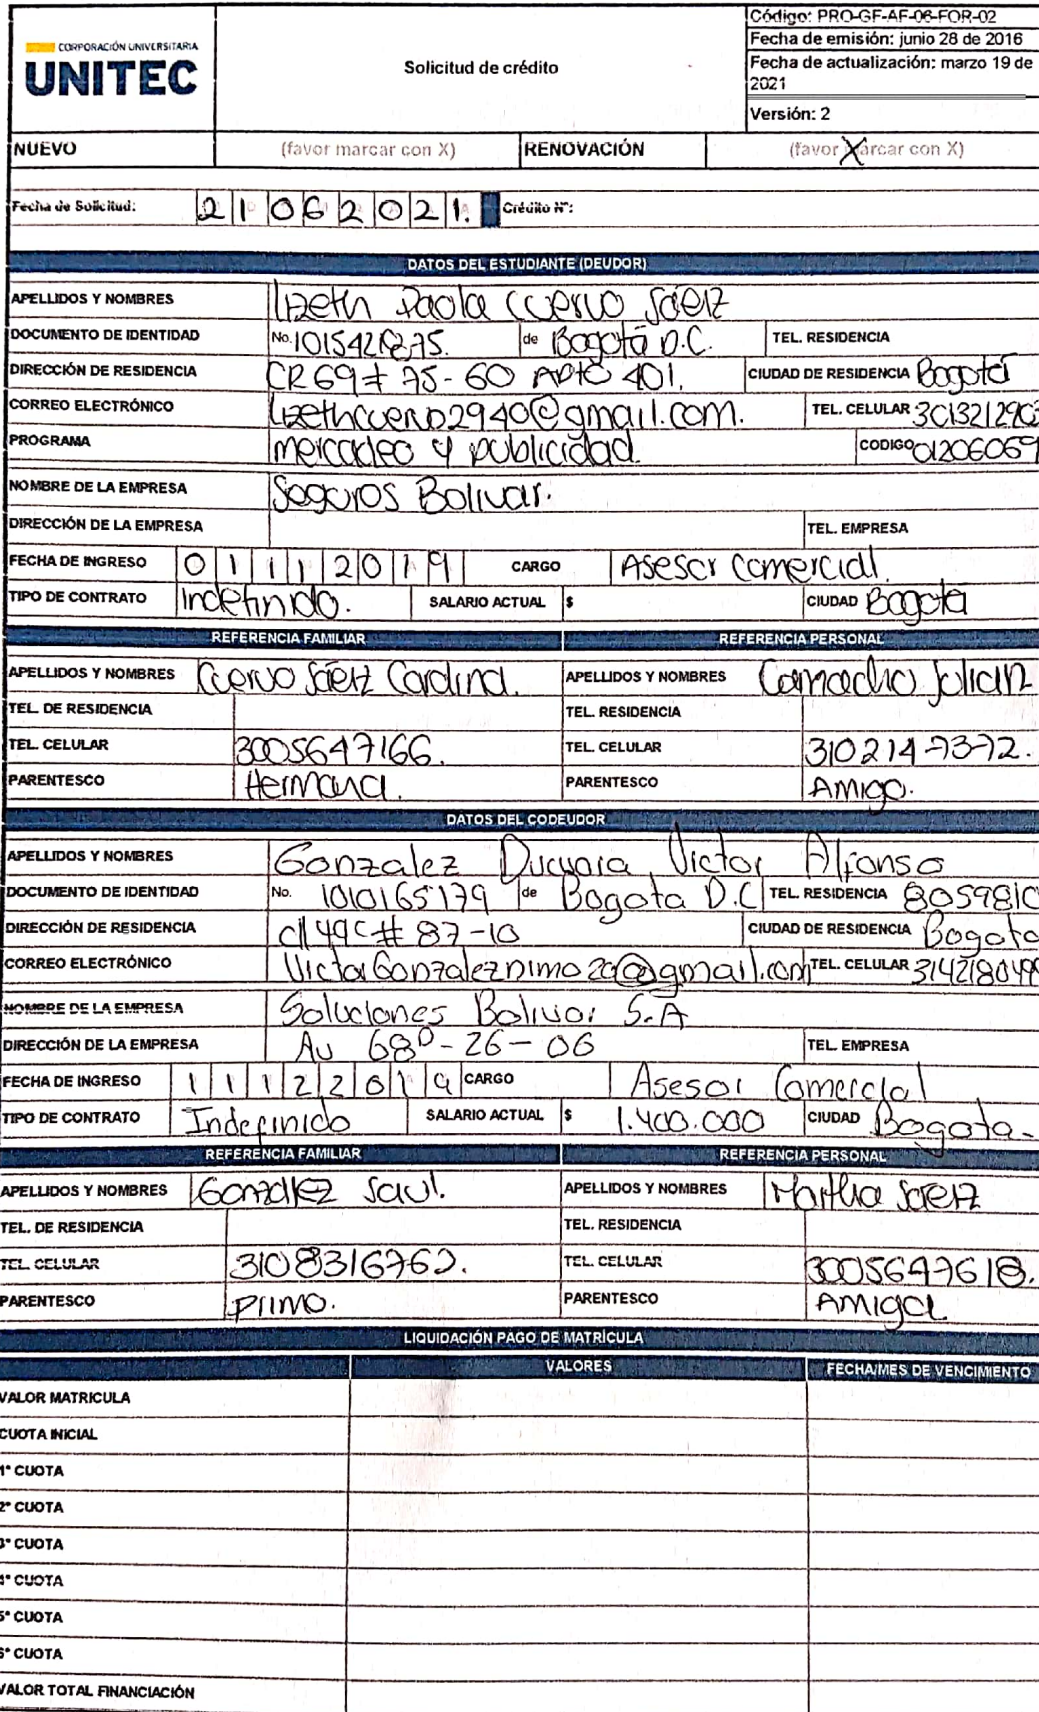 CORPORACIÓN UNIVERSITARIA
UNITEC
Solicitud de crédito
Código: PRO-GF-AF-06-FOR-02
Fecha de emisión: junio 28 de 2016
Fecha de actualización: marzo 19 de
2021
Versión: 2
NUEVO (favor marcar con X) RENOVACIÓN (favor marcar con X) X
Fecha de Solicitud: 21 06 2021. Crédito N°:
DATOS DEL ESTUDIANTE (DEUDOR)
APELLIDOS Y NOMBRES Lizeth Paola Cuervo Sáenz
DOCUMENTO DE IDENTIDAD No. de Bogotá D.C. TEL. RESIDENCIA
DIRECCIÓN DE RESIDENCIA CR 69 # 75-60 APTO 401. CIUDAD DE RESIDENCIA Bogotá
CORREO ELECTRÓNICO lizethcuervo2940@gmail.com. TEL. CELULAR
PROGRAMA mercadeo y publicidad CODIGO 01206059
NOMBRE DE LA EMPRESA Seguros Bolivar.
DIRECCIÓN DE LA EMPRESA TEL. EMPRESA
FECHA DE INGRESO 01112019 CARGO Asesor comercial.
TIPO DE CONTRATO Indefinido. SALARIO ACTUAL $ CIUDAD Bogotá
REFERENCIA FAMILIAR REFERENCIA PERSONAL
APELLIDOS Y NOMBRES Cuervo Sáenz Carolina. APELLIDOS Y NOMBRES Camacho Julian
TEL. DE RESIDENCIA TEL. RESIDENCIA
TEL. CELULAR 3005647166. TEL. CELULAR 310214-7372.
PARENTESCO Hermana. PARENTESCO Amigo.
DATOS DEL CODEUDOR
APELLIDOS Y NOMBRES Gonzalez Victor Alfonso
DOCUMENTO DE IDENTIDAD No. 1010165179 de Bogota D.C TEL. RESIDENCIA 805981
DIRECCIÓN DE RESIDENCIA cll 49c # 87-10 CIUDAD DE RESIDENCIA Bogota
CORREO ELECTRÓNICO TEL. CELULAR 314218049
NOMBRE DE LA EMPRESA Soluciones Bolivar S.A
DIRECCIÓN DE LA EMPRESA Av 68D-26-06 TEL. EMPRESA
FECHA DE INGRESO 11122019 CARGO Asesor Comercial
TIPO DE CONTRATO Indefinido SALARIO ACTUAL $ 1.400.000 CIUDAD Bogota-
REFERENCIA FAMILIAR REFERENCIA PERSONAL
APELLIDOS Y NOMBRES Gonzalez Saul. APELLIDOS Y NOMBRES Martha Saenz
TEL. DE RESIDENCIA TEL. RESIDENCIA
TEL. CELULAR 3108316762. TEL. CELULAR 3005647618.
PARENTESCO Primo. PARENTESCO Amiga
LIQUIDACIÓN PAGO DE MATRÍCULA
VALORES FECHA/MES DE VENCIMIENTO
VALOR MATRICULA
CUOTA INICIAL
1° CUOTA
2° CUOTA
3° CUOTA
4° CUOTA
5° CUOTA
6° CUOTA
VALOR TOTAL FINANCIACIÓN